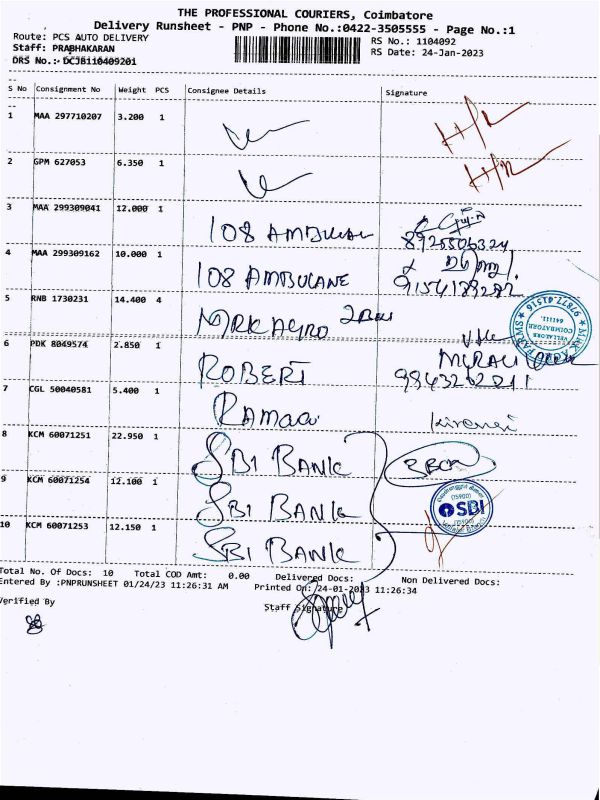 THE PROFESSIONAL COURIERS, Coimbatore
Delivery Runsheet - PNP - Phone No.:0422-3505555 - Page No.:1
Route: PCS AUTO DELIVERY
RS No.: 1104092
Staff: PRABHAKARAN
RS Date: 24-Jan-2023
DRS No.:- DCJBI10409201
S No Consignment No Weight PCS Consignee Details Signature
1 MAA 297710207 3.200 1
2 GPM 627053 6.350 1
3 MAA 299309041 12.000 1
108
8925506324
4 MAA 299309162 10.000 1 108 AMBULANE
9154189282
5 RNB 1730231 14.400 4 MRK AGRO
6 PDK 8049574 2.850 1 ROBERT
MURALI
9843202811
7 CGL 50040581 5.400 1
8 KCM 60071251 22.950 1 SBI BANK
9 KCM 60071254 12.100 1 SBI BANK
SBI
10 KCM 60071253 12.150 1 SBI BANK
Total No. Of Docs: 10 Total COD Amt: 0.00 Delivered Docs: Non Delivered Docs:
Entered By :PNPRUNSHEET 01/24/23 11:26:31 AM Printed On:24-01-2023 11:26:34
Verified By
Staff Signature